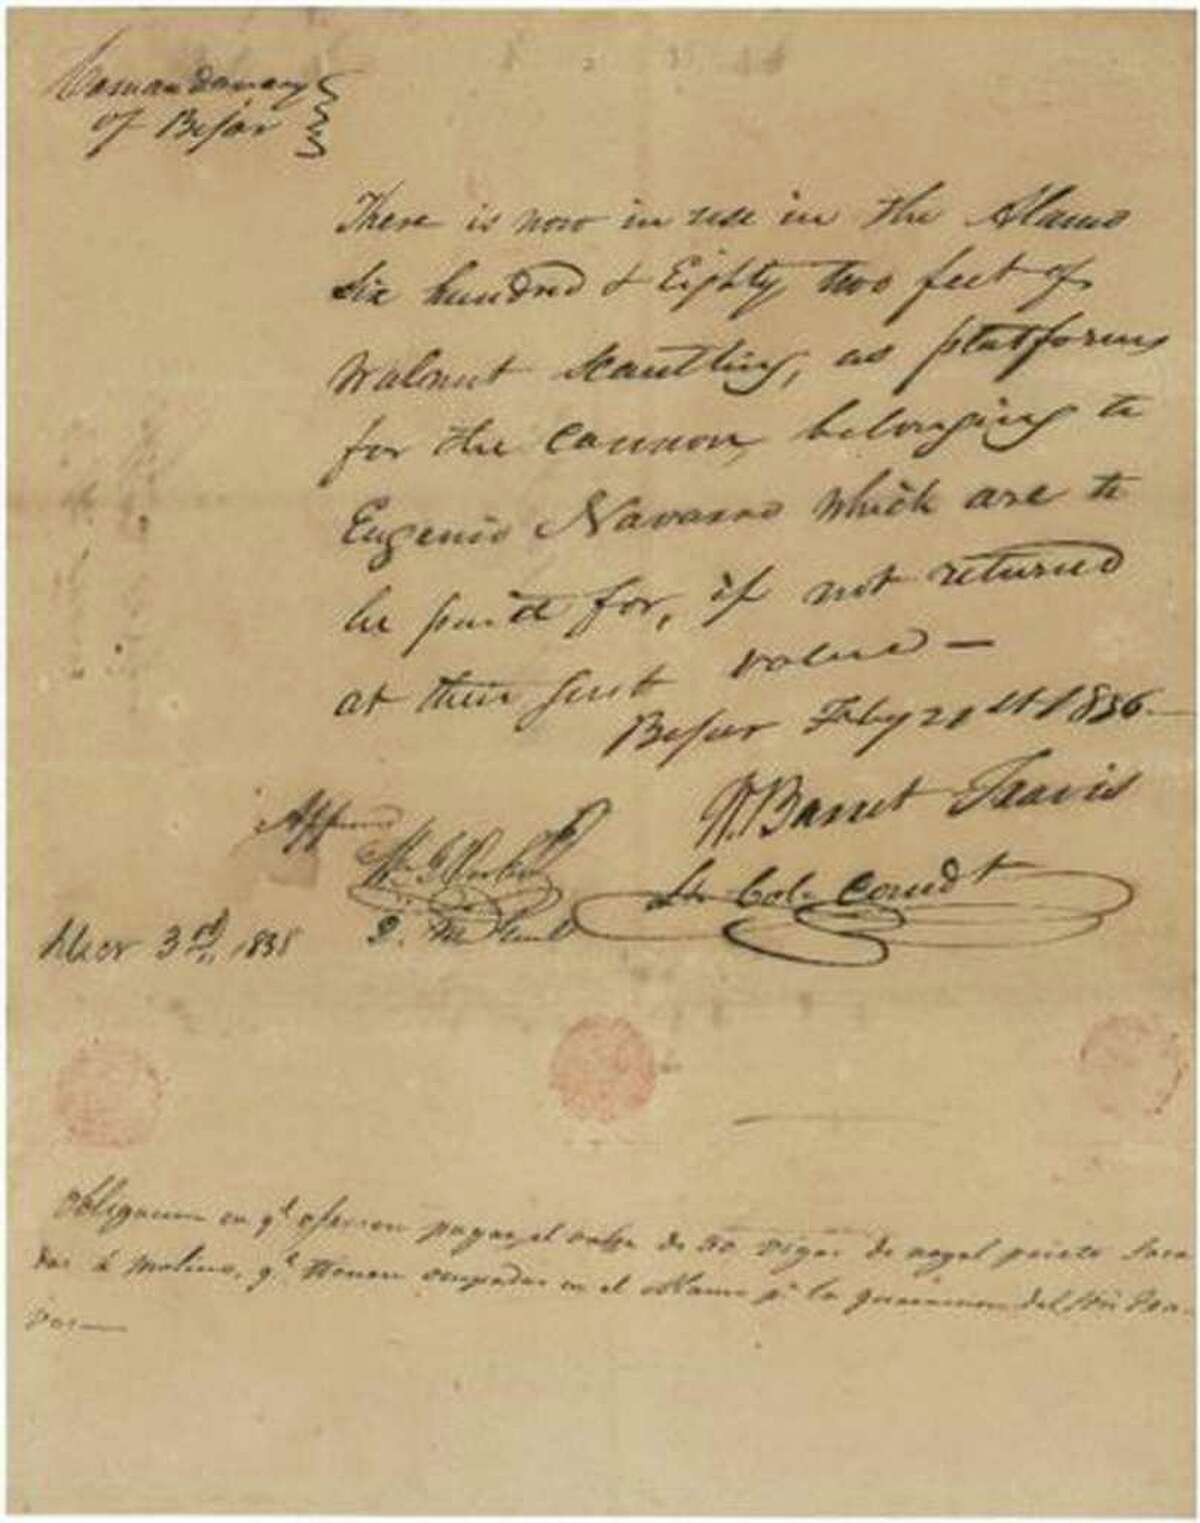 Comandancy
of Bejar
There is now in use in the Alamo
Six hundred & Eighty two feet of
Walnut Scantling, as platforms
for the Cannon belonging to
Eugenio Navarro which are to
be paid for, if not returned
at their just value —
Bejar Feby 21st 1836 —
W. Barret Travis
Lt Col. Comdt
3rd, 1838
Obligacion en qe pagar el de 50 vigas de nogal prieto
á Molino, qe tienen ocupadas en el Alamo pr la guarnicion del